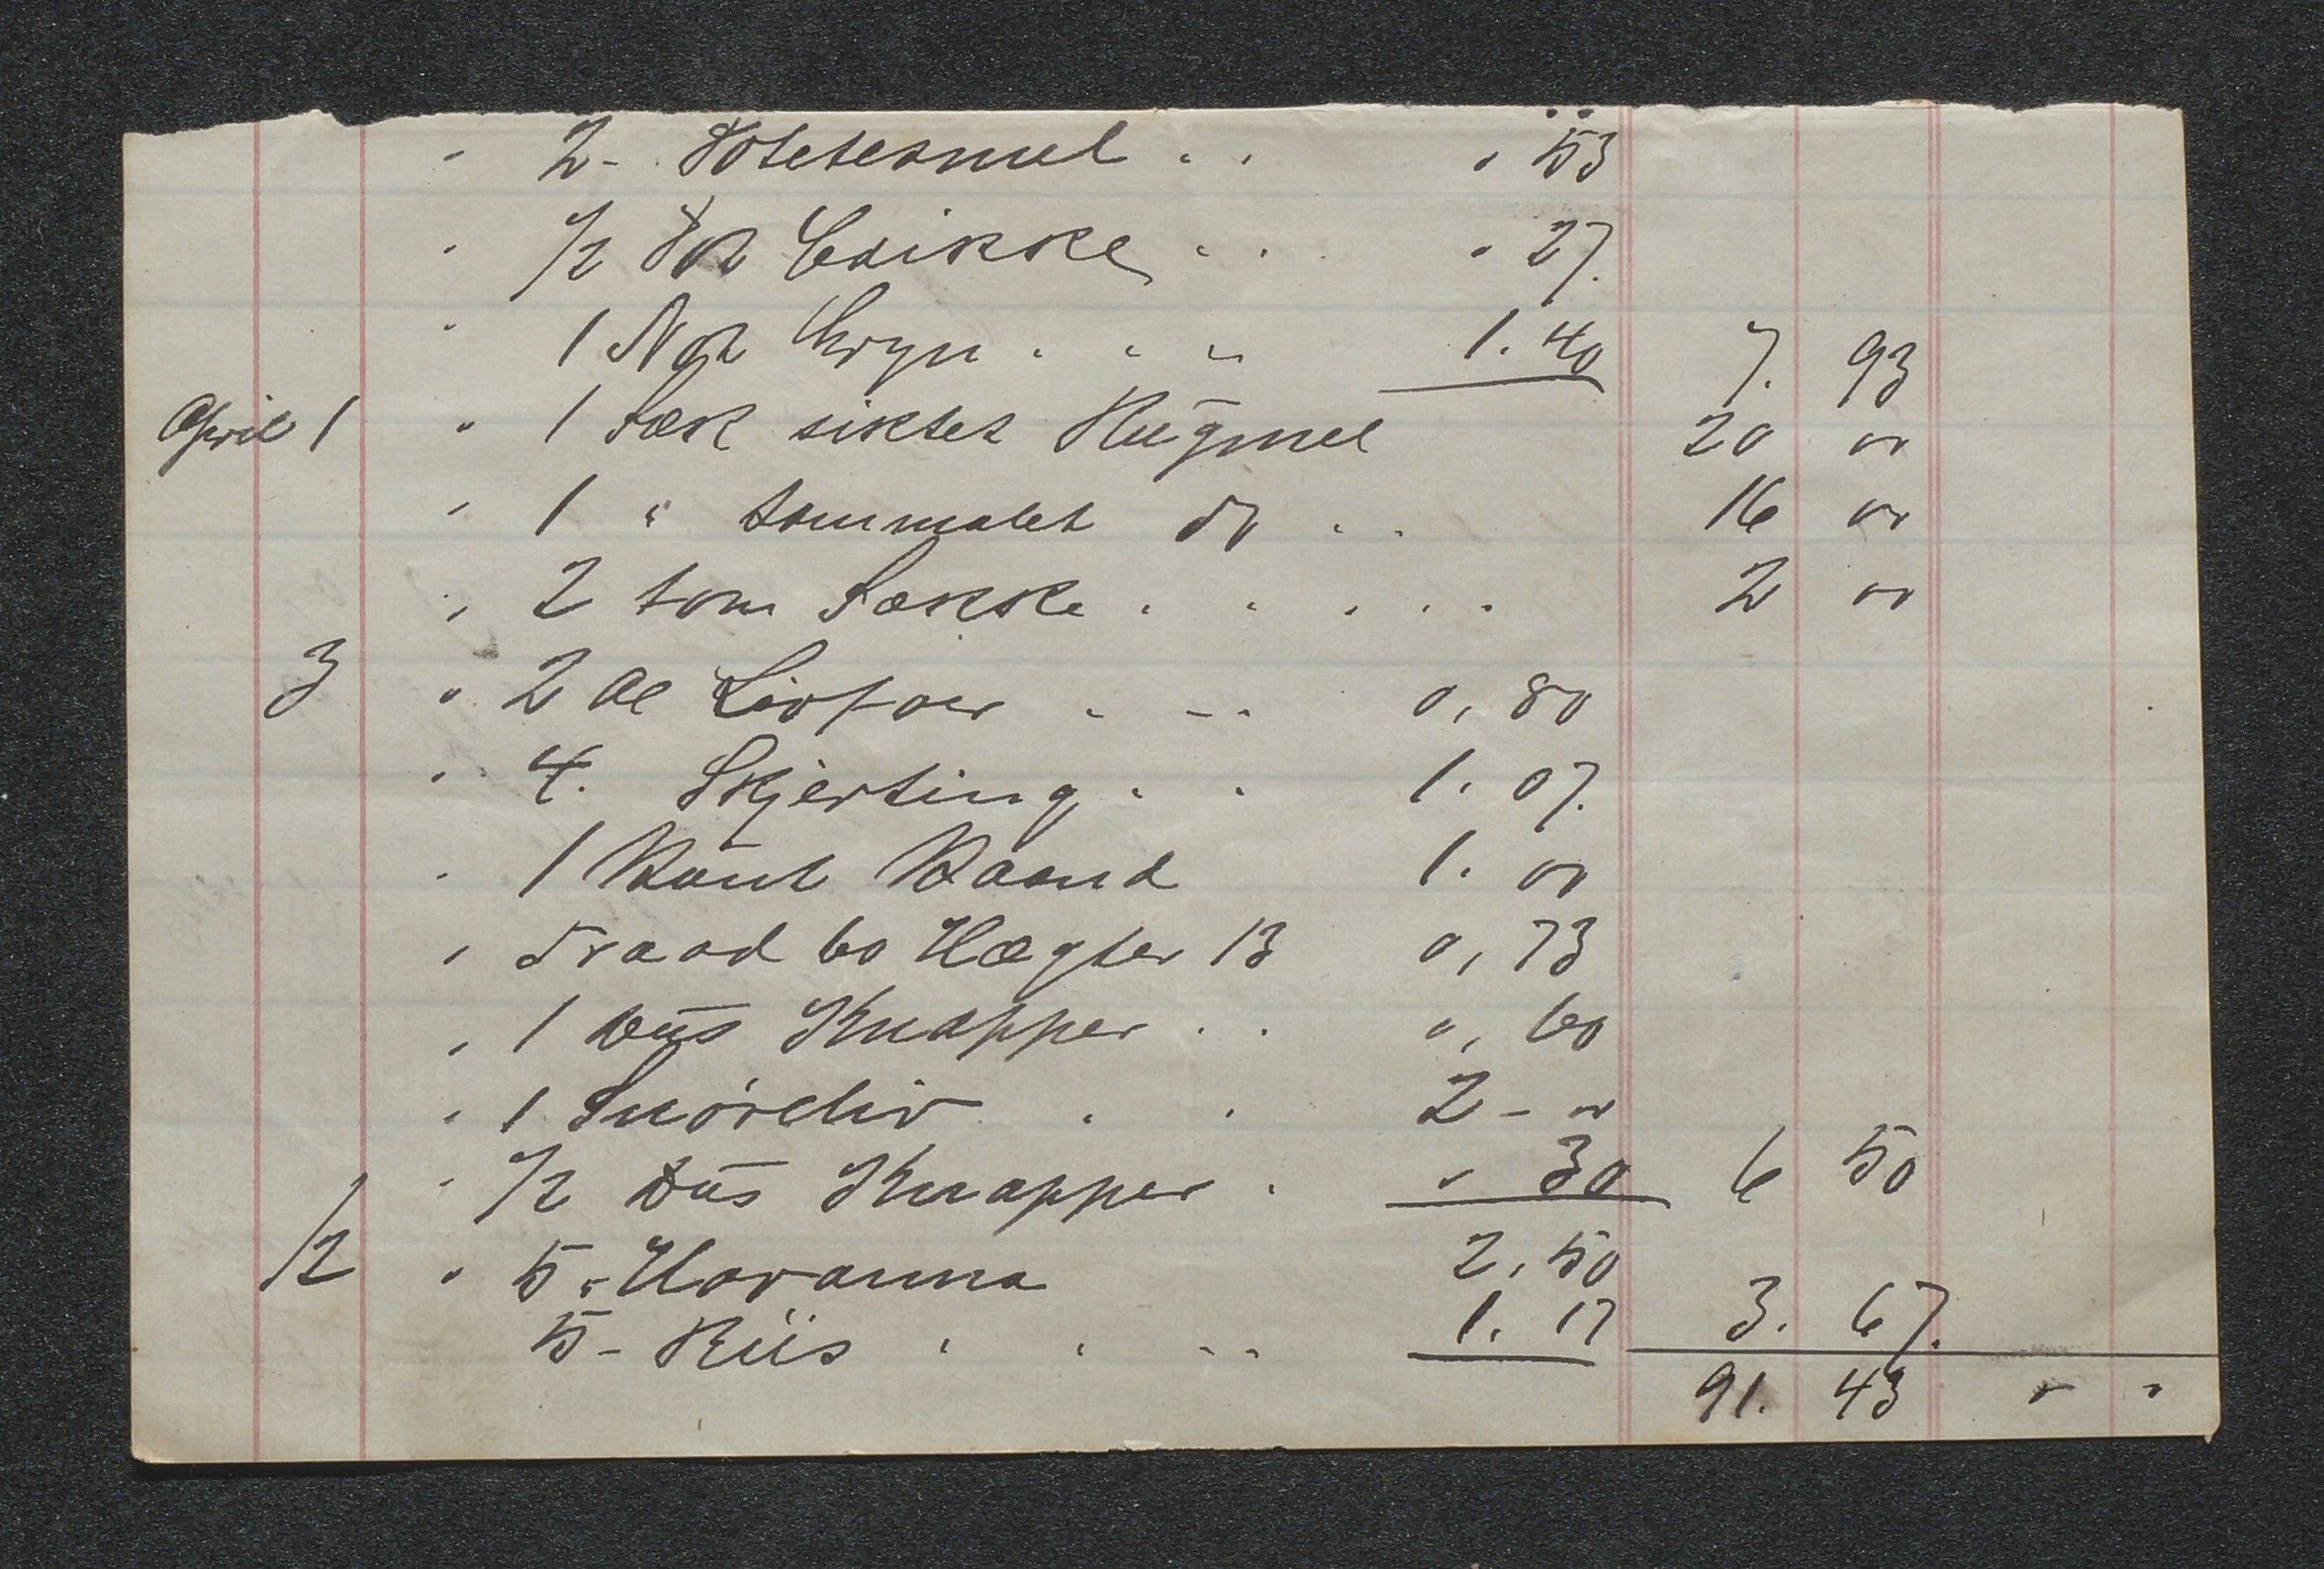 " 2 - Potetesmel . . " 53
" 1/2 Pk Cxikke . . " 27.
" 1 Np Gryn . . " 1.40 7. 93
April 1 " 1 Sæk siktet Rŭgmel 20 00
" 1 " sammalet do . . 16 00
" 2 tom Sække . . . . . 2 00
3 " 2 Al Livfoer . - - 0,80
" 4. Skjerting . . 1.07.
" 1 Bŭnt Baand 1.00
" Traad 60 Hægter 13 0,73
" 1 Dŭs Knapper . . 0,60
" 1 Snöreliv . . 2 - 00
" 1/2 Dŭs Knapper . " 30 6 50
12 " 5 " Havanna 2,50
5 - Riis . . - - 1.17 3. 67.
91. 43 " "